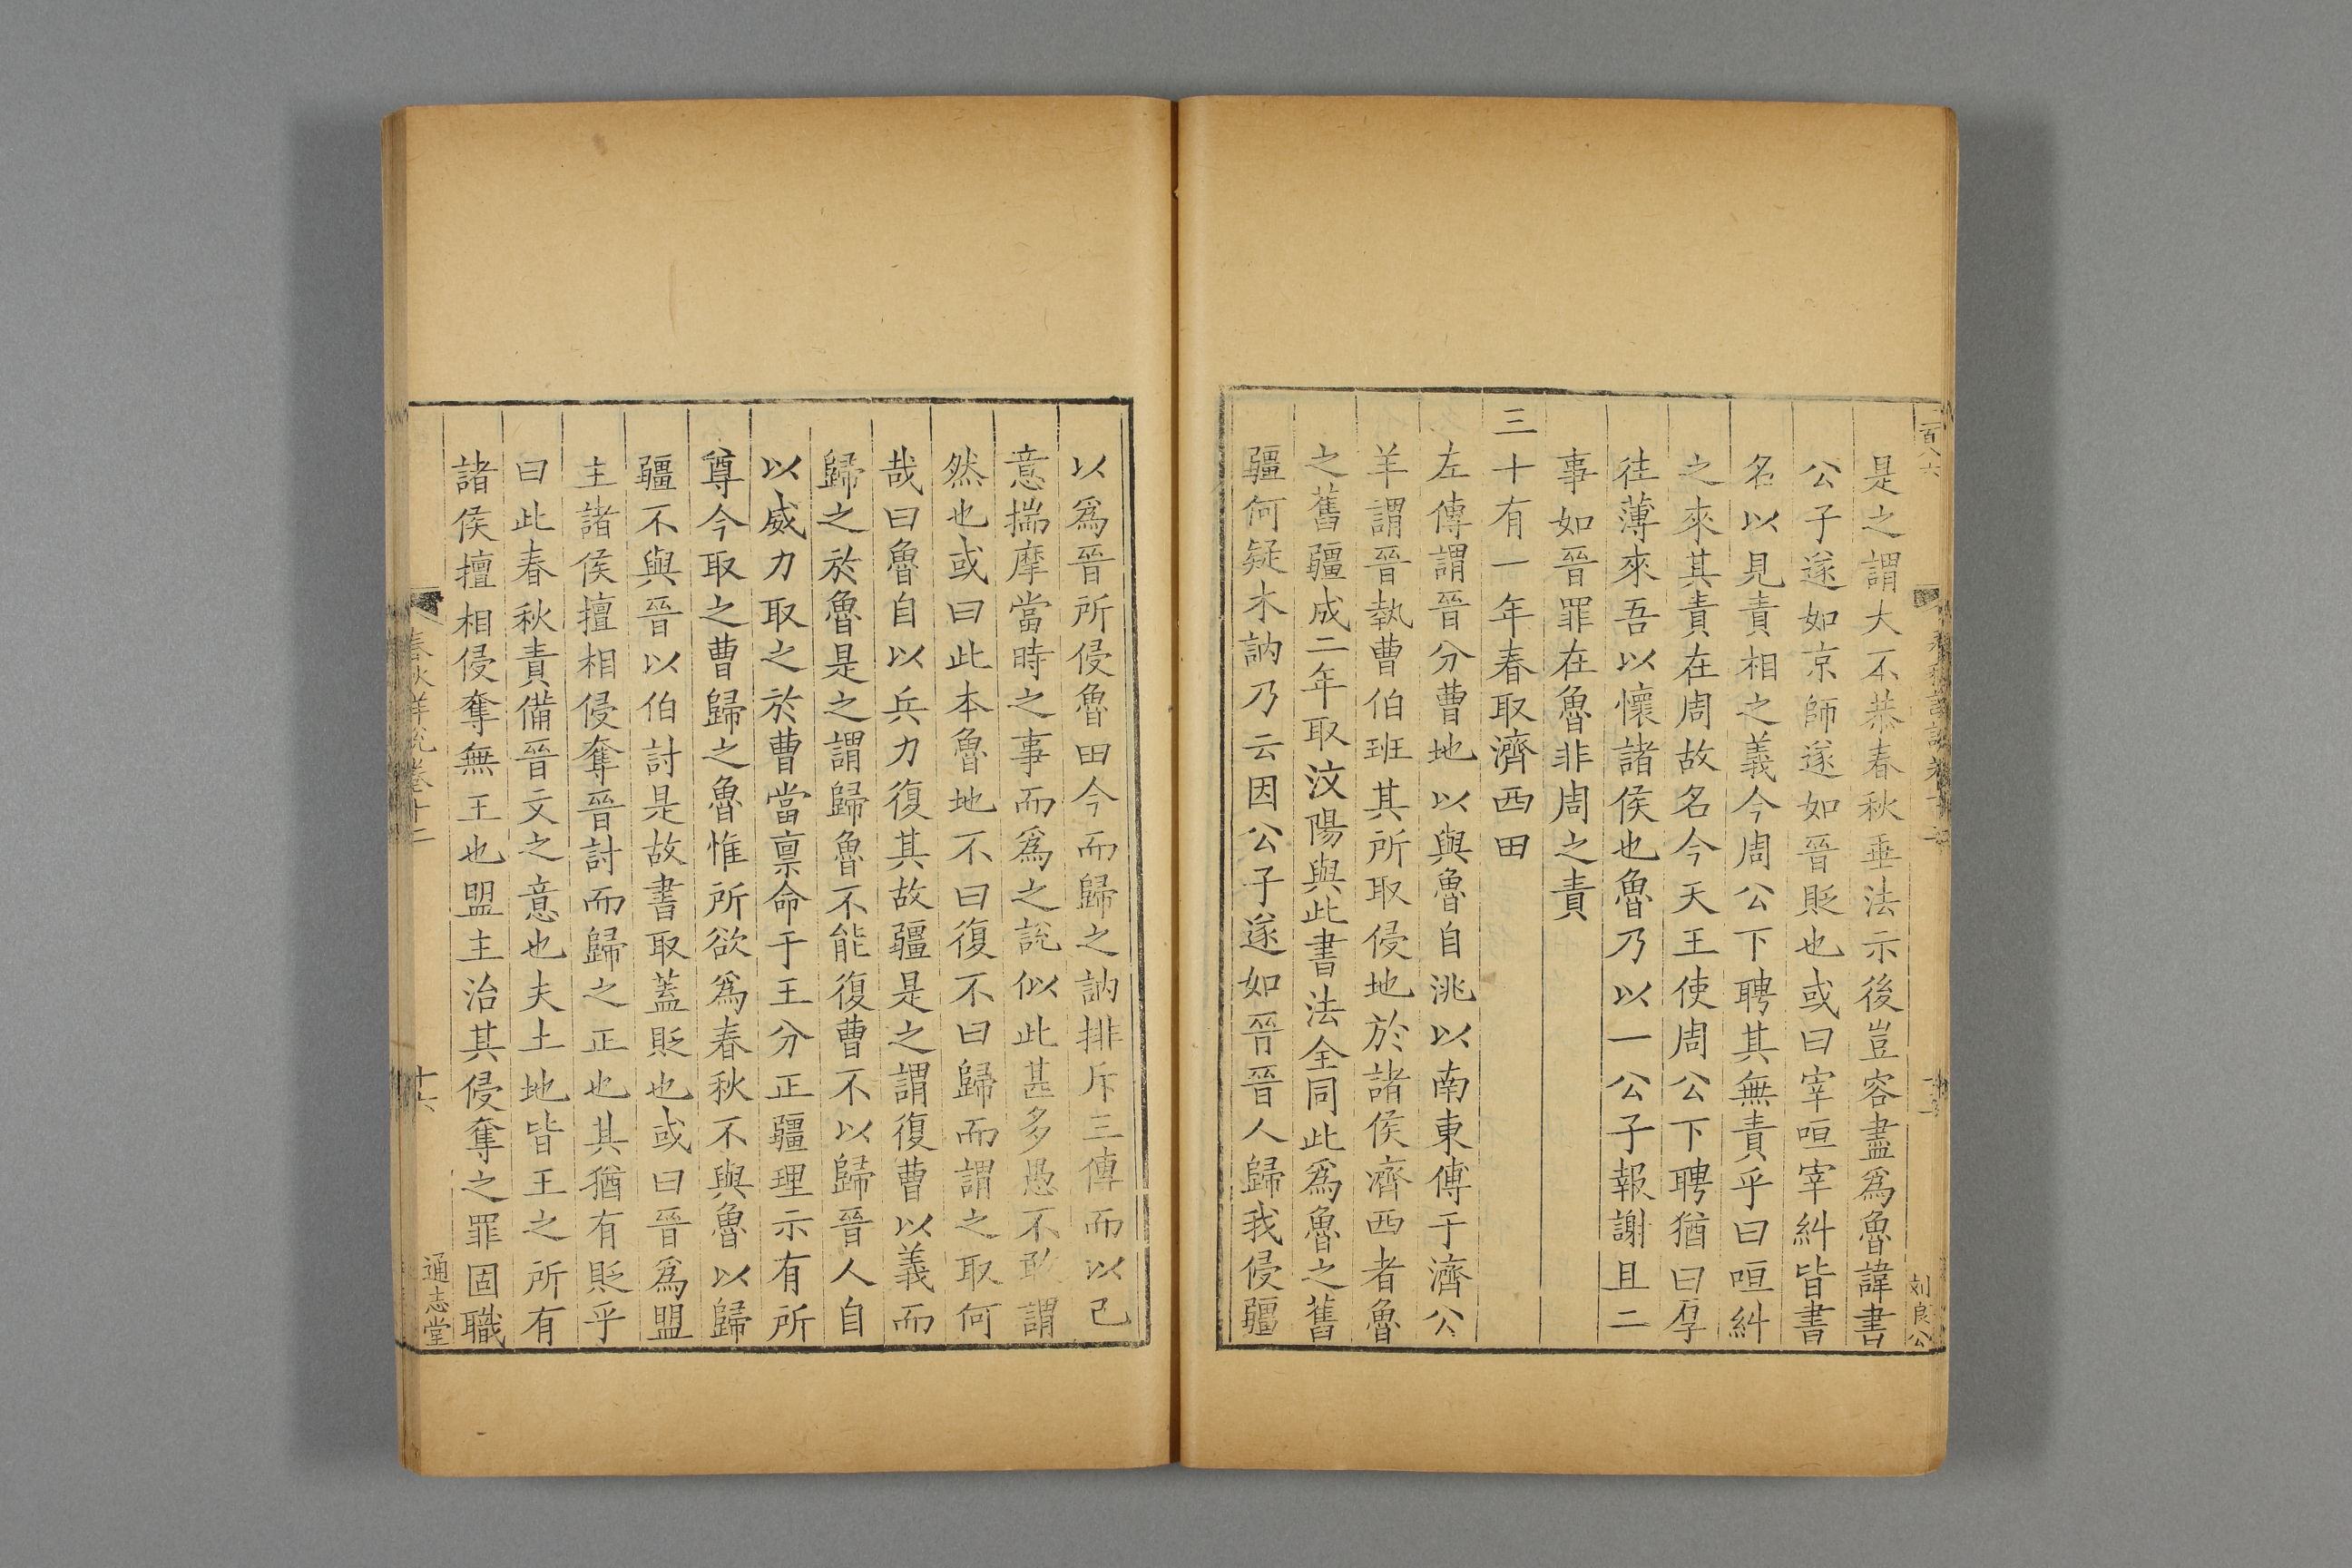 百八六
刘良公
是之謂大不恭春秋垂法示後豈容盡爲魯諱書
公子遂如京師遂如晉貶也或曰宰咺宰糾皆書
名以見責相之義今周公下聘其無責乎曰咺糾
之來其責在周故名今天王使周公下聘猶曰厚
徃薄來吾以懷諸侯也魯乃以一公子報謝且二
事如晉罪在魯非周之責
三十有一年春取濟西田
左傳謂晉分曹地以與魯自洮以南東傅于濟公
羊謂晉執曹伯班其所取侵地於諸侯濟西者魯
之舊疆成二年取汶陽與此書法全同此爲魯之舊
疆何疑木訥乃云因公子遂如晉晉人歸我侵疆
以爲晉所侵魯田今而歸之訥排斥三傳而以己
意揣摩當時之事而爲之說似此甚多愚不敢謂
然也或曰此本魯地不曰復不曰歸而謂之取何
哉曰魯自以兵力復其故疆是之謂復曹以義而
歸之於魯是之謂歸魯不能復曹不以歸晉人自
以威力取之於曹當禀命于王分正疆理示有所
尊今取之曹歸之魯惟所欲爲春秋不與魯以歸
疆不與晉以伯討是故書取蓋貶也或曰晉爲盟
主諸侯擅相侵奪晉討而歸之正也其猶有貶乎
曰此春秋責備晉文之意也夫土地皆王之所有
諸侯擅相侵奪無王也盟主治其侵奪之罪固職
春秋詳說卷十二
十六
通志堂